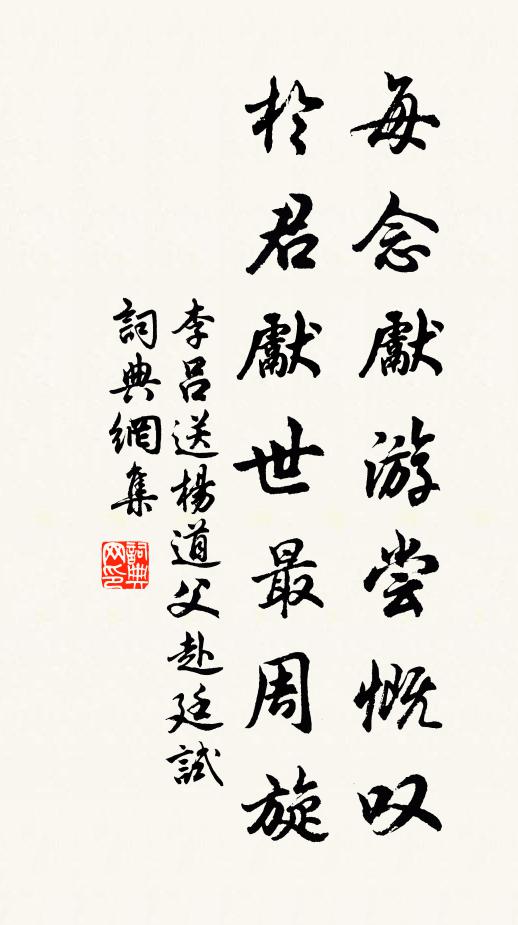 每念獻游尝慨叹
於君獻世最周旋
李吕送楊道父赴廷試
詞典網集
詞典网印